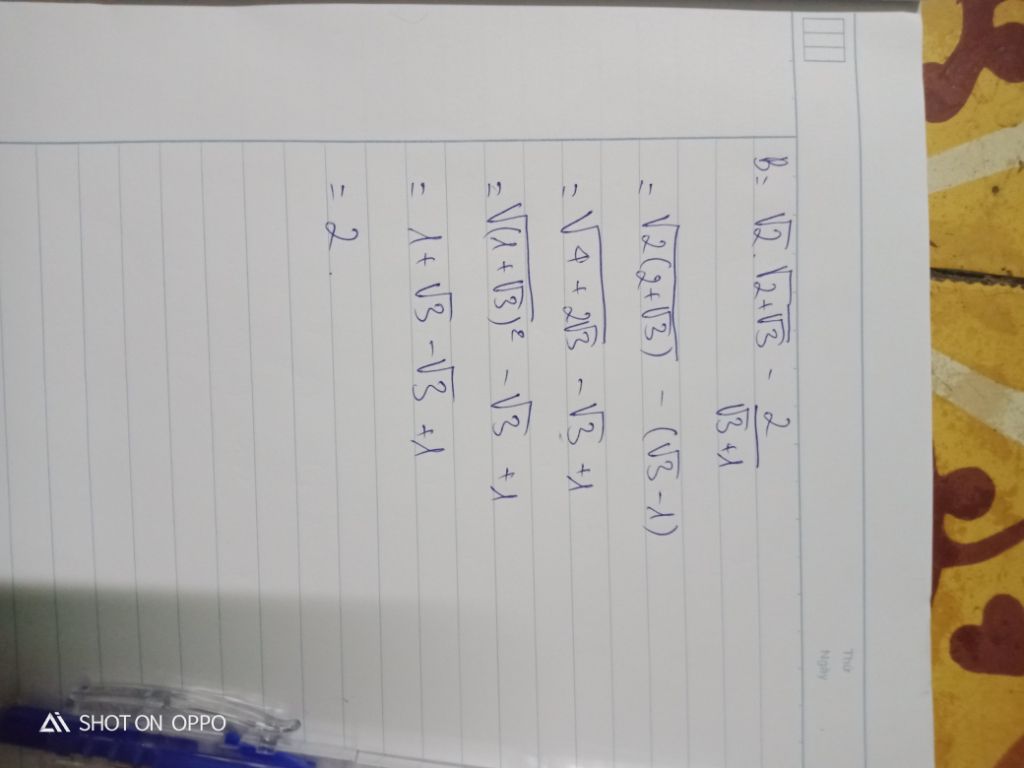 B = √2 . √(2+√3) - 2/(√3+1)
= √(2(2+√3)) - (√3-1)
= √(4+2√3) - √3 +1
= √((1+√3)²) - √3 +1
= 1 + √3 - √3 +1
= 2.
Thứ
Ngày
SHOT ON OPPO